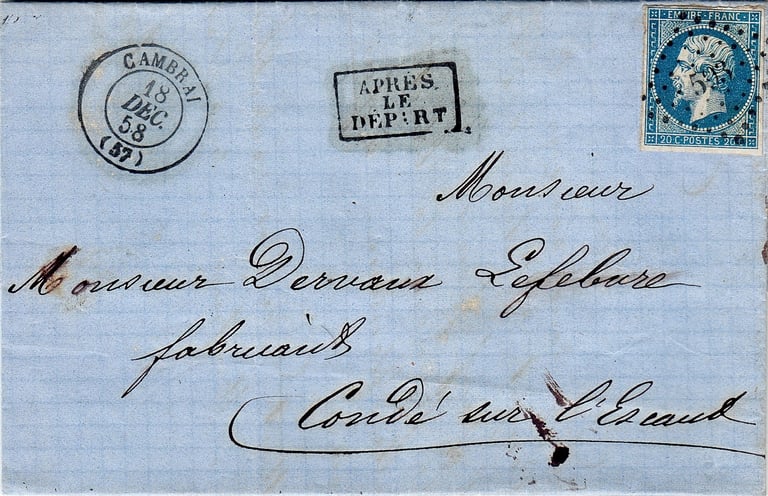 CAMBRAI
18
DÉC.
58
(57)
APRÈS
LE
DÉPART
EMPIRE-FRANC
20 C·POSTES 20 C
Monsieur
Monsieur Dervaux Lefebvre
fabricant
Condé sur l'Escaut